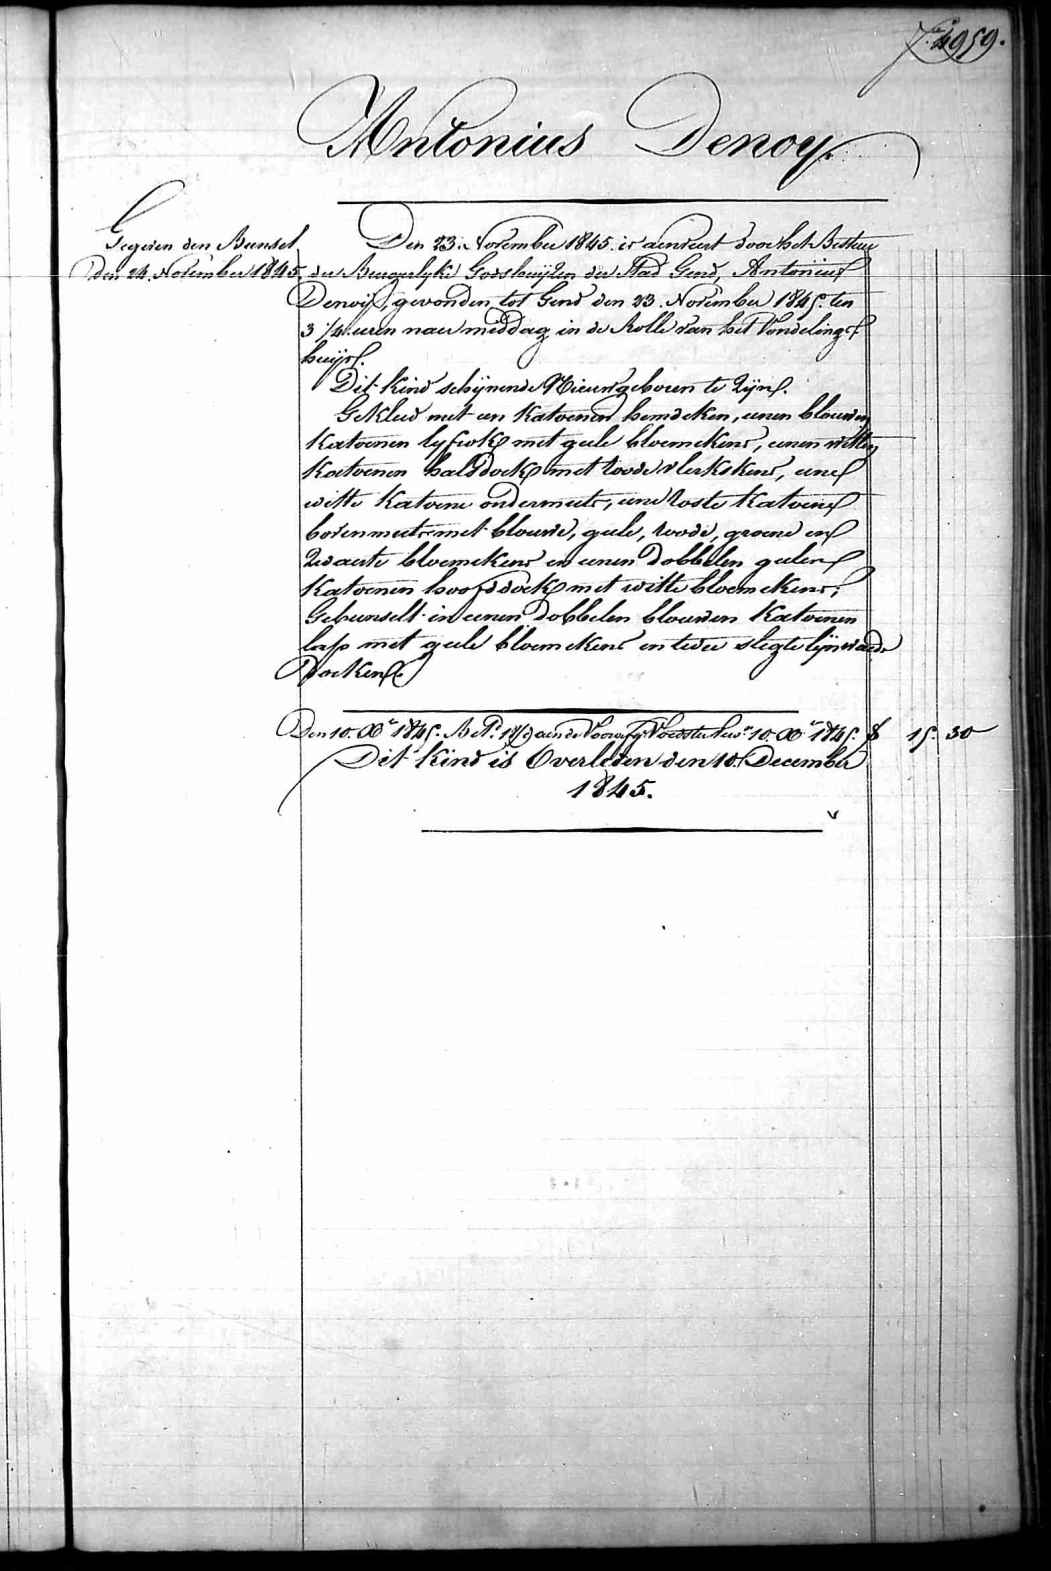 4959.
Antonius Denoy.
Gegeven den Bunsel
den 24. November 1845.
Den 23. November 1845. is aenveert door het Bestuer
der Burgerlyke Godshuijzen der Stad Gend, Antonius
Denoij, gevonden tot Gend den 23. November 1845. ten
3 1/4 uren naer middag in de Rolle van het Vondelings-
huijs.
Dit kind schijnende Nieuwgeboren te zijn.
Gekleed met een katoenen hemdeken, eenen blauwen
katoenen lyfrok met geele bloemekens, eenen witten
katoenen halsdoek met roode vlekskens, eene
witte katoene ondermuts, eene roste katoene
bovenmuts met blauwe, geele, roode, groene en
zwarte bloemekens en eenen dobbelen geelen
katoenen hoofddoek met witte bloemekens;
Gebunselt in eenen dobbelen blauwen katoenen
lap met geele bloemekens en twee slegte lijnwaede
doeken.
Den 10. Xber 1845. Bet. aen de Voorz. Voedster 10. Xber 1845. f 15. 30
Dit kind is Overleden den 10. December
1845.